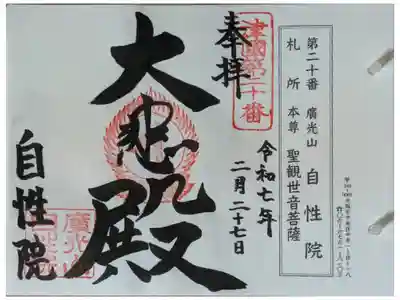 第二十番 廣光山 自性院
札所 本尊 聖観世音菩薩
奉拝
津國第二十番
令和七年
二月二十七日
大悲殿
自性院
廣光山